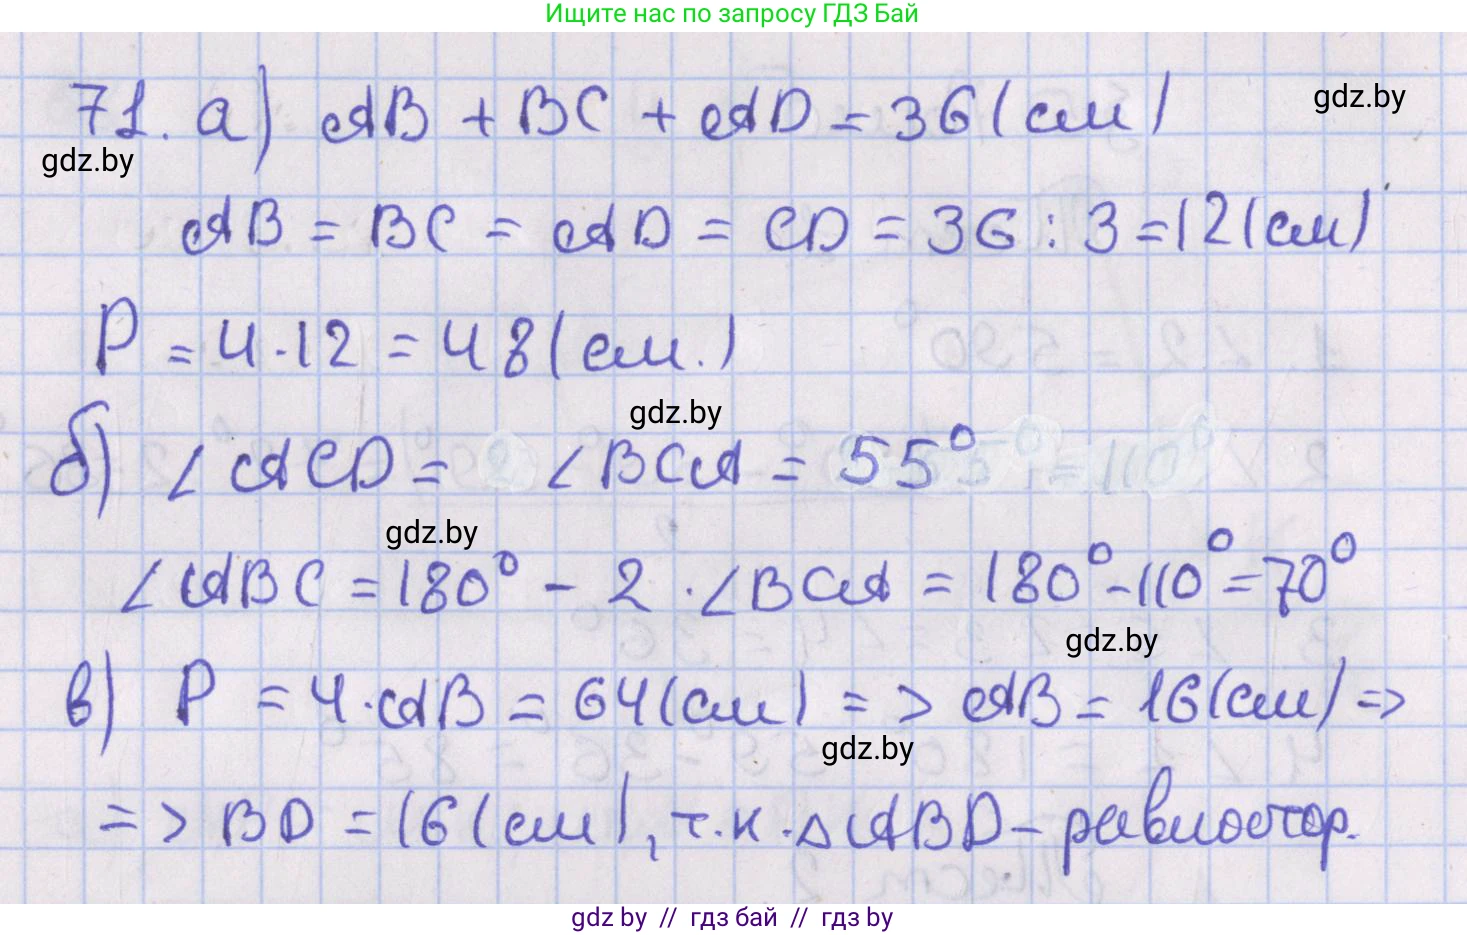 Ищите нас по запросу ГДЗ Бай
71. а) AB + BC + AD = 36 (см)
gdz.by
gdz.by
AB = BC = AD = CD = 36 : 3 = 12 (см)
P = 4 · 12 = 48 (см.)
gdz.by
б) ∠ACD = ∠BCA = 55°
gdz.by
∠ABC = 180° - 2 · ∠BCA = 180° - 110° = 70°
gdz.by
в) P = 4 · AB = 64 (см) => AB = 16 (см) =>
gdz.by
=> BD = 16 (см), т.к. △ABD - равностор.
gdz by // гдз бай // гдз by